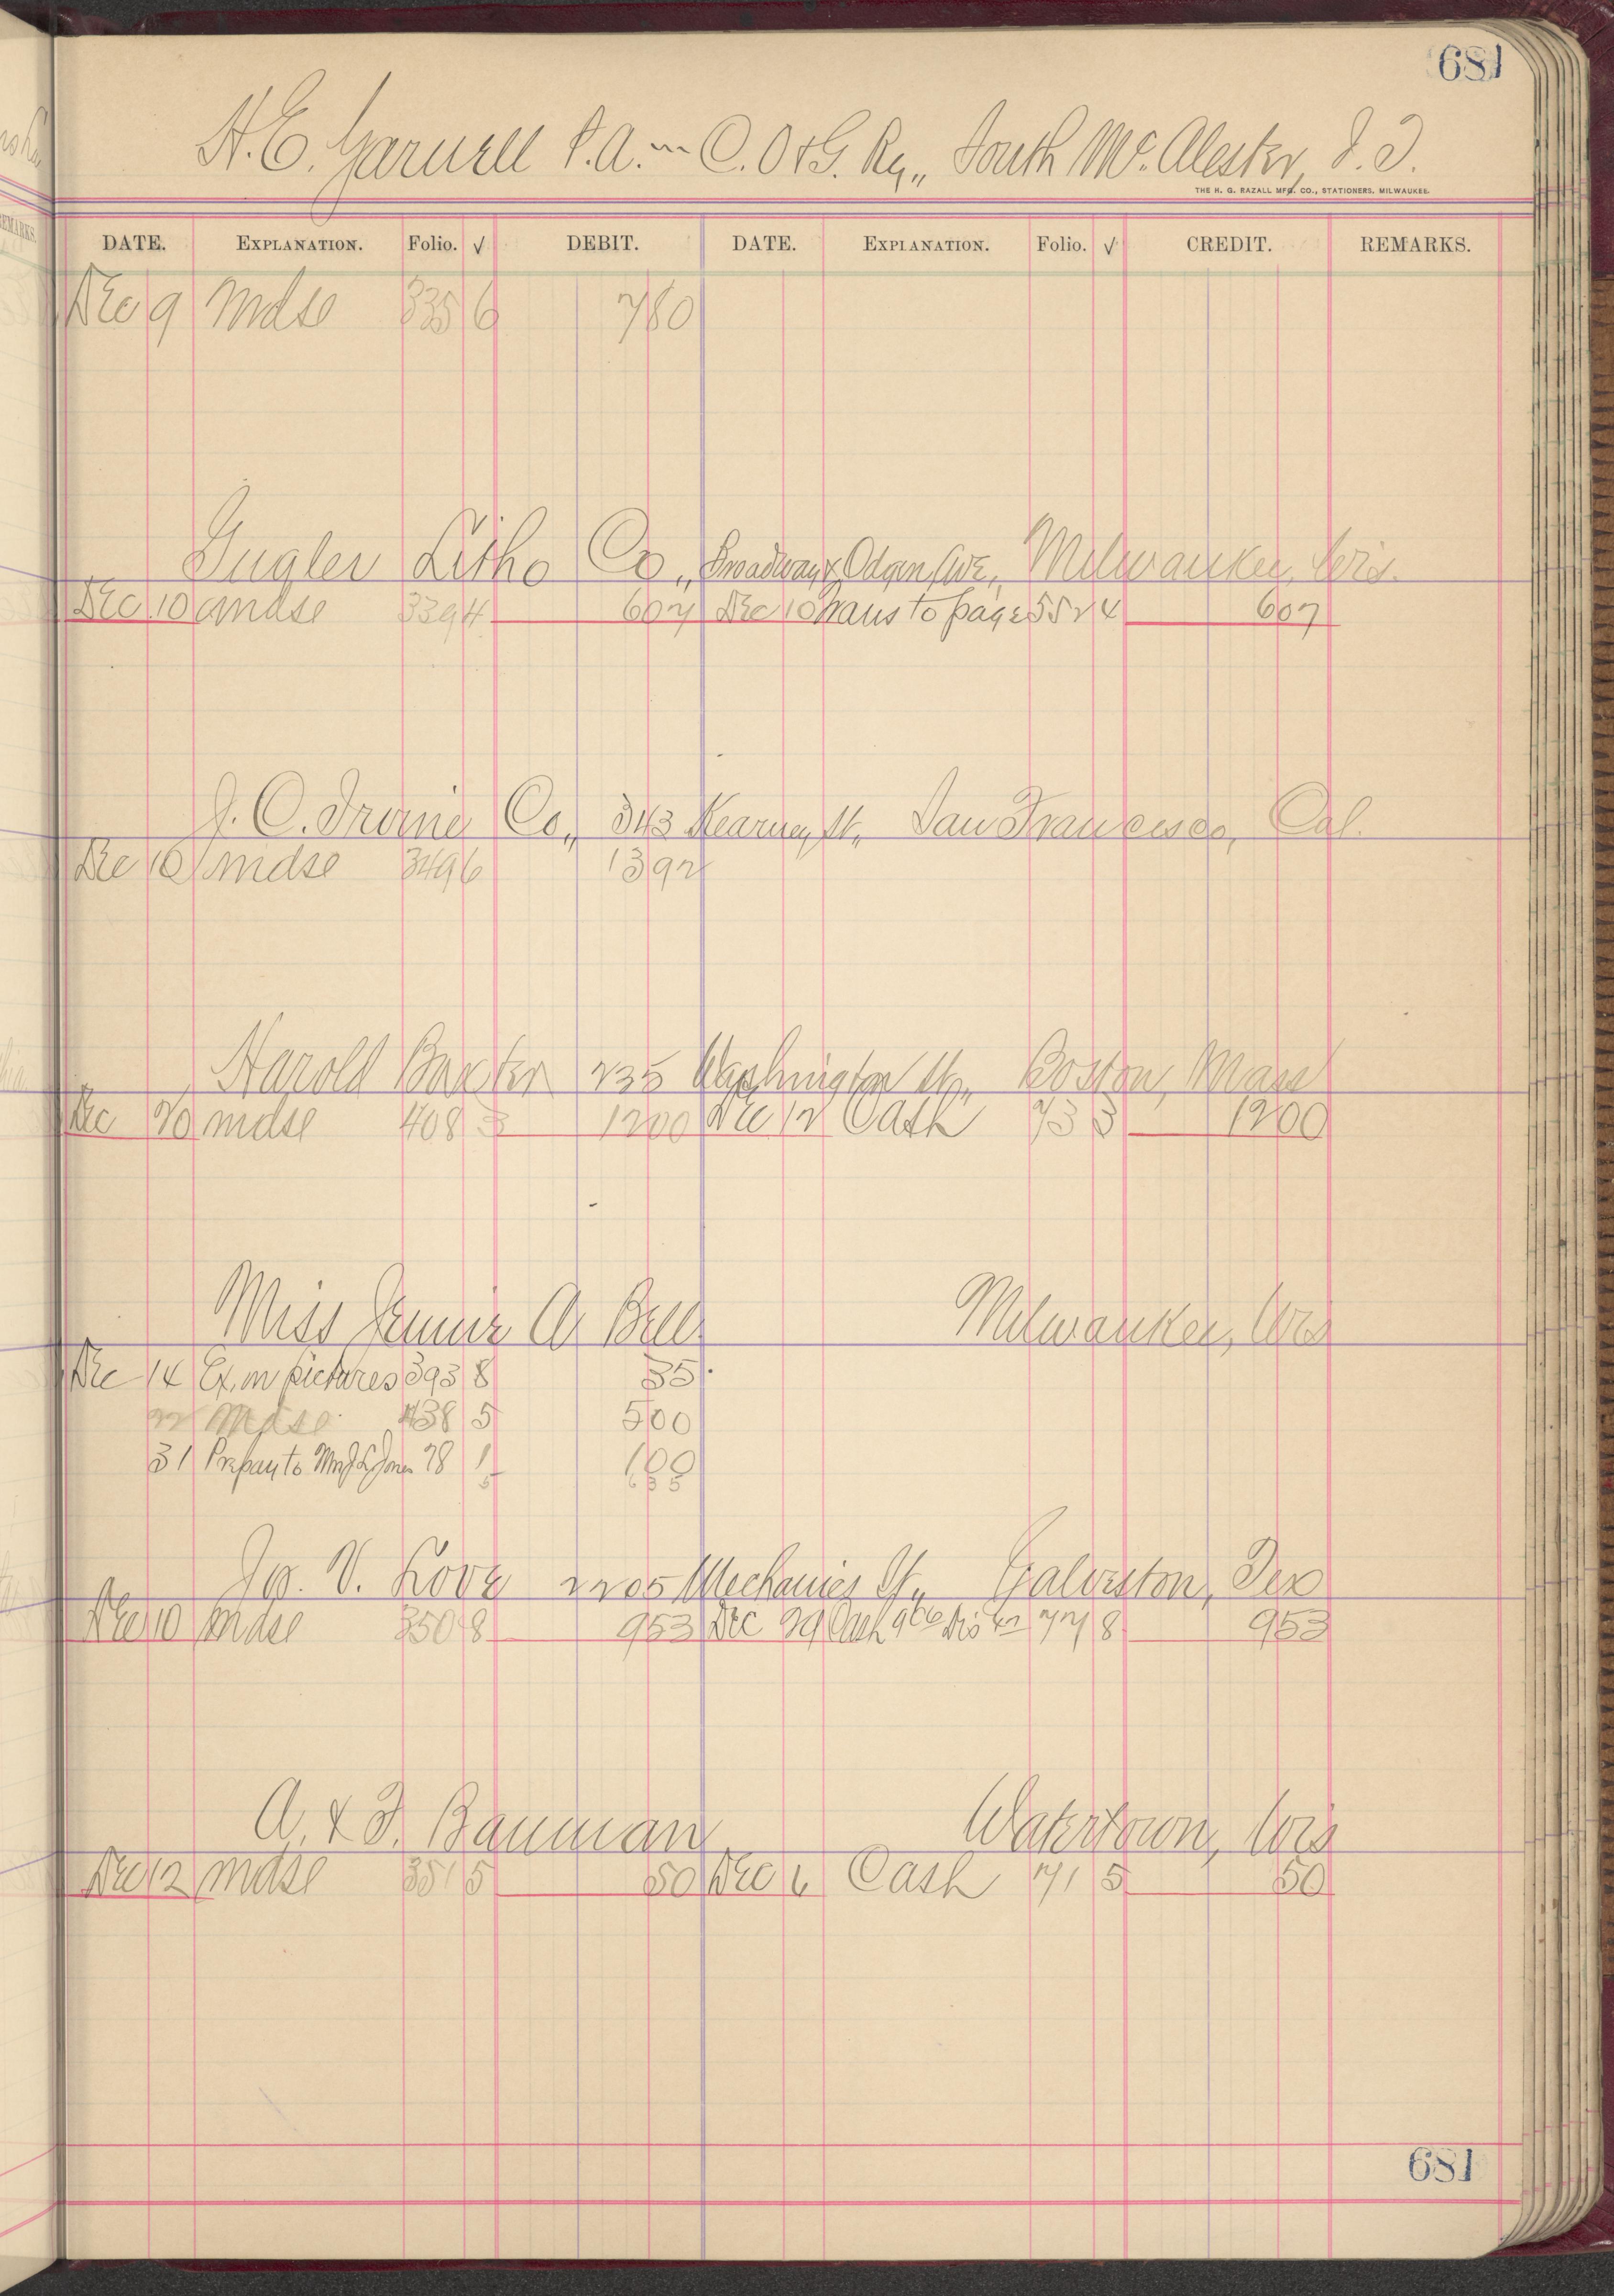 681
H. E. Yarnell P. A. C. O & G. Ry., South Mc Alester, I. T.
THE H. G. RAZALL MFG. CO., STATIONERS, MILWAUKEE.
DATE. EXPLANATION. Folio. √ DEBIT. DATE. EXPLANATION. Folio. √ CREDIT. REMARKS.
Dec 9 Mdse 335 6 7 80
Gugler Litho Co., Broadway & Odgen Ave., Milwaukee, Wis.
Dec 10 mdse 339 4 6 07 Dec 10 Trans to page 552 4 6 07
J. C. Irvine Co., 343 Kearney St., San Francisco, Cal.
Dec 10 mdse 349 6 13 92
Harold Baxter 235 Washington St., Boston, Mass
Dec 20 mdse 408 3 12 00 Dec 12 Cash 73 3 12 00
Miss Jennie A Bell Milwaukee, Wis
Dec 14 Ex. on pictures 393 8 35
22 Mdse 438 5 5 00
31 Prepay to Mrs J L Jones 78 1 1 00
5 6 35
Jas. V. Love 2205 Mechanics St., Galveston, Tex
Dec 10 Mdse 350 8 9 53 Dec 29 Cash 906 Dis 47 77 8 9 53
A. & F. Bauman Watertown, Wis
Dec 12 mdse 351 5 50 Dec 6 Cash 71 5 50
681